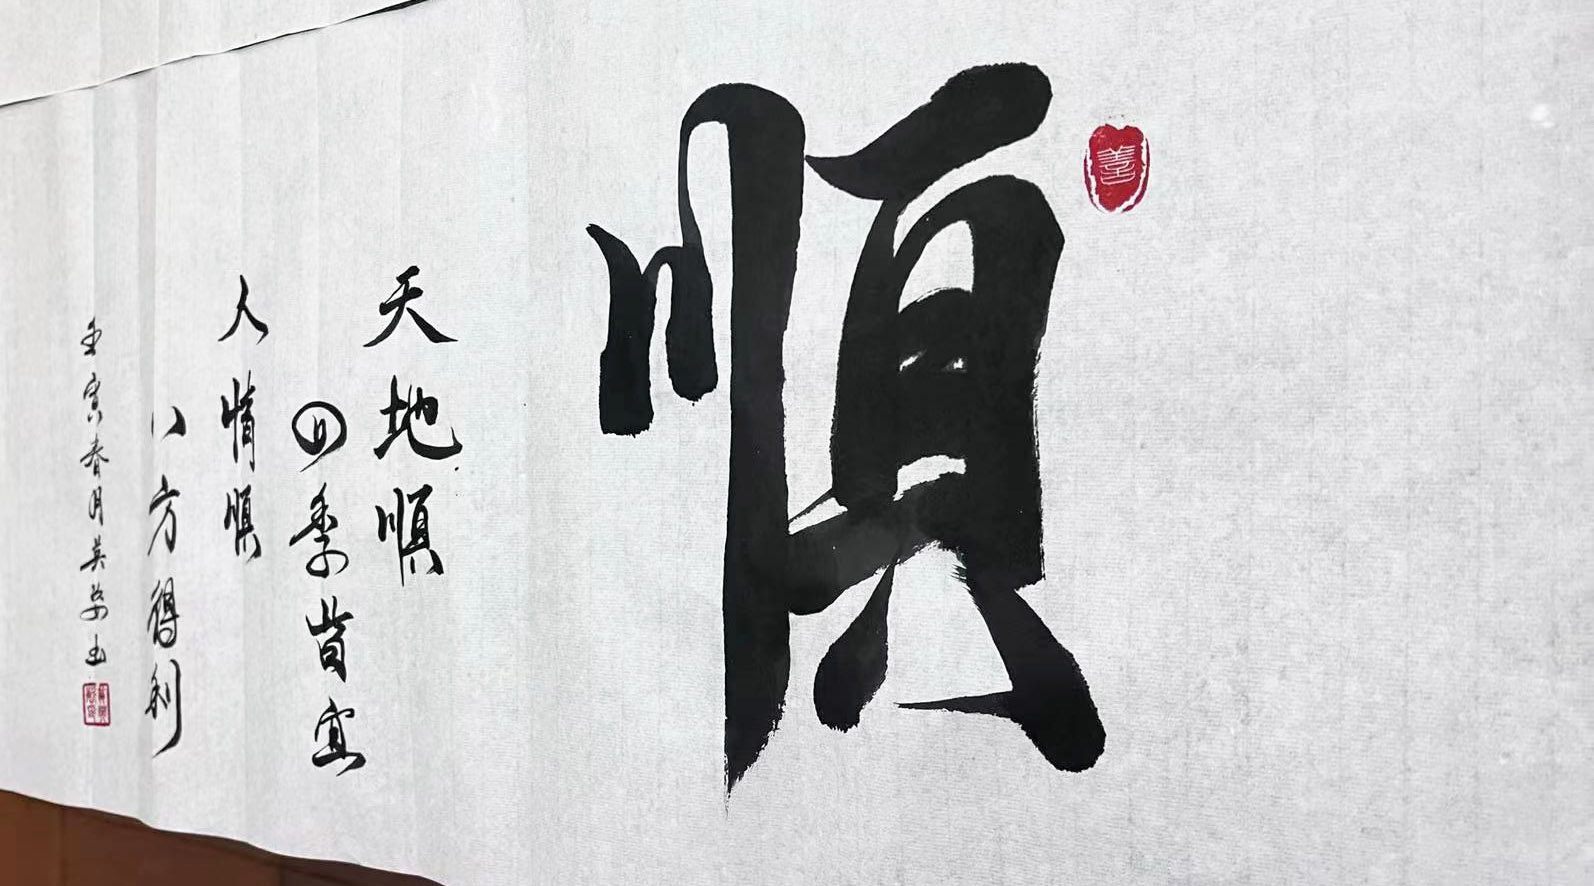 善
順
天地順
四季皆宜
人情順
八方得利
壬寅春月英